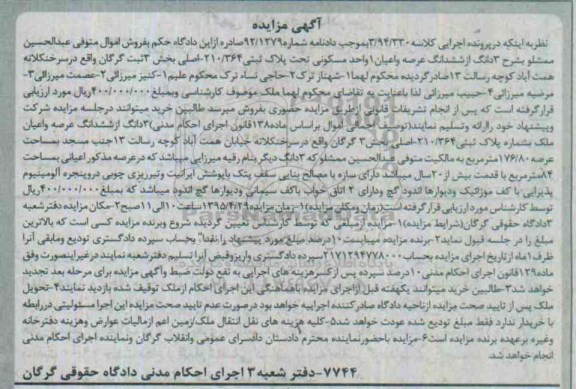 آگهی مزایده
نظر به اینکه در پرونده اجرایی کلاسه ۳/۹۴/۳۳۰ بموجب دادنامه شماره ۹۲/۱۳۷۹ صادره از این دادگاه حکم بفروش اموال متوفی عبدالحسین
ممشلو بشرح ۳ دانگ از ششدانگ عرصه واعیان ۱ واحد مسکونی تحت پلاک ثبتی ۲۱۰/۳۶۴-اصلی بخش ۳ ثبت گرگان واقع در سرخنکلاته
همت آباد کوچه رسالت ۱۳ صادر گردیده محکوم لهما ۱-شهناز ترک ۲-حاجی نساء ترک محکوم علیم ۱-کنیز میرزائی ۲-عصمت میرزائی ۳-
مرضیه میرزائی ۴-حبیب میرزائی لذا باعنایت به تقاضای محکوم لهما ملک موصوف کارشناسی وبمبلغ ۴۰۰/۰۰۰/۰۰۰ ریال مورد ارزیابی
قرار گرفته است که پس از انجام تشریفات قانونی از طریق مزایده حضوری بفروش میرسد طالبین خرید میتوانند درجلسه مزایده شرکت
وپیشنهاد خود را ارائه وتسلیم نمایند(توصیف اجمالی اموال براساس ماده ۱۳۸ قانون اجرای احکام مدنی)۳دانگ از ششدانگ عرصه واعیان
ملک بشماره پلاک ثبتی ۲۱۰/۳۶۴-اصلی بخش ۳ گرگان واقع در سرخنکلاته خیابان همت آباد کوچه رسالت ۱۳ جنب مسجد بمساحت
عرصه ۱۷۶/۸۰ مترمربع به مالکیت متوفی عبدالحسین ممشلو که ۳ دانگ دیگر بنام رقیه میرزایی میباشد که درعرصه مذکور اعیانی بمساحت
۸۴ مترمربع با قدمت بیش از ۲۰ سال میباشد دارای سازه با مصالح بنایی سقف پتک باپوشش ایرانیت وتیرریزی چوبی درو پنجره آلومینیوم
پذیرایی با کف موزائیک ودیوارها اندود گچ ودارای ۲ اتاق خواب باکف سیمانی ودیوارها گچ اندود میباشد که بمبلغ ۴۰۰/۰۰۰/۰۰۰ ریال
توسط کارشناس مورد ارزیابی قرار گرفته است.زمان ومکان مزایده:۱-زمان مزایده ۱۳۹۵/۴/۲۹ ساعت ۱۰ الی ۱۱ صبح ۲-مکان مزایده دفتر شعبه
۳ دادگاه حقوقی گرگان(شرایط مزایده)۱-مزایده از مبلغی که توسط کارشناس تعیین گردیده شروع وبرنده مزایده کسی است که بالاترین
مبلغ را در جلسه قبول نماید ۲-برنده مزایده میبایست ۱۰درصد مبلغ مورد پیشنهاد را نقداً بحساب سپرده دادگستری تودیع ومابقی آنرا
ظرف ۱ماه از تاریخ اجرای مزایده بحساب ۲۱۷۱۲۹۴۷۷۸۰۰۰ سپرده دادگستری واریز وقبض آنرا تسلیم دفتر شعبه نمایند در غیر اینصورت وفق
ماده ۱۲۹ قانون اجرای احکام مدنی ۱۰درصد سپرده پس از کسر هزینه های اجرایی به نفع دولت ضبط وآگهی مزایده برای مرحله بعد تجدید
خواهد شد ۳-طالبین خرید میتوانند یکهفته قبل از اجرای مزایده باهماهنگی این اجرای احکام از ملک توقیف شده بازدید نمایند ۴-تحویل
ملک پس از تایید صحت مزایده از ناحیه دادگاه صادر کننده اجراییه خواهد بود درصورت عدم تایید صحت مزایده این اجرا مسئولیتی دررابطه
با خریدار ندارد فقط مبلغ تودیع شده عودت خواهد شد ۵-کلیه هزینه های نقل انتقال ملک/زمین اعم از مالیات عوارض وهزینه دفترخانه
وغیره برعهده برنده مزایده است ۶-مزایده باحضور نماینده محترم دادستان دادسرای عمومی وانقلاب گرگان ونماینده اجرای احکام مدنی
انجام خواهد شد.
۷۷۴۴-دفتر شعبه ۳ اجرای احکام مدنی دادگاه حقوقی گرگان